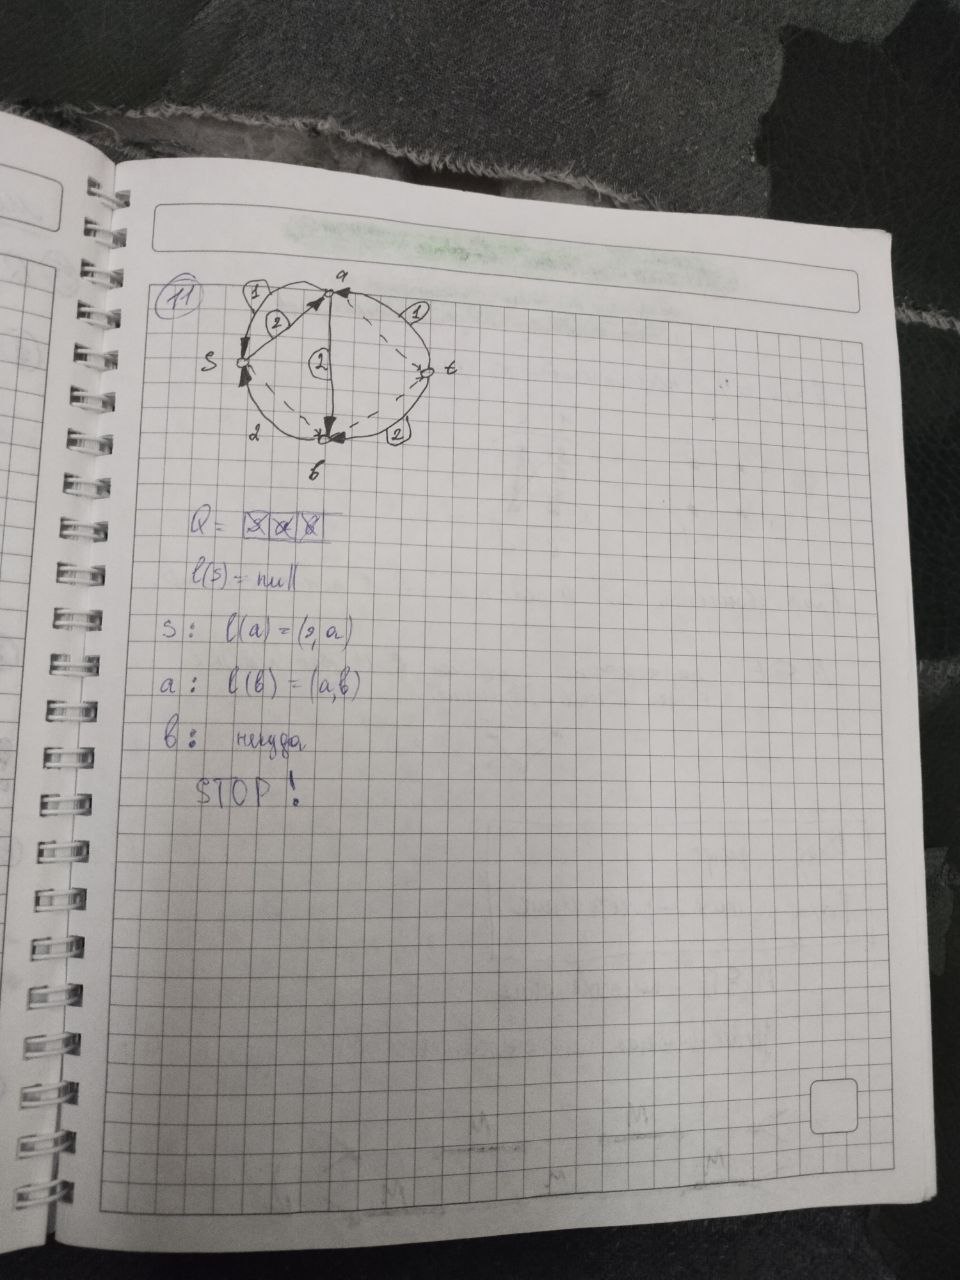 11
a
1
1
2
S
2
t
2
2
в
Q = S a в
l(s) = null
s: l(a) = (s, a)
a: l(в) = (a, в)
в: некуда
STOP!